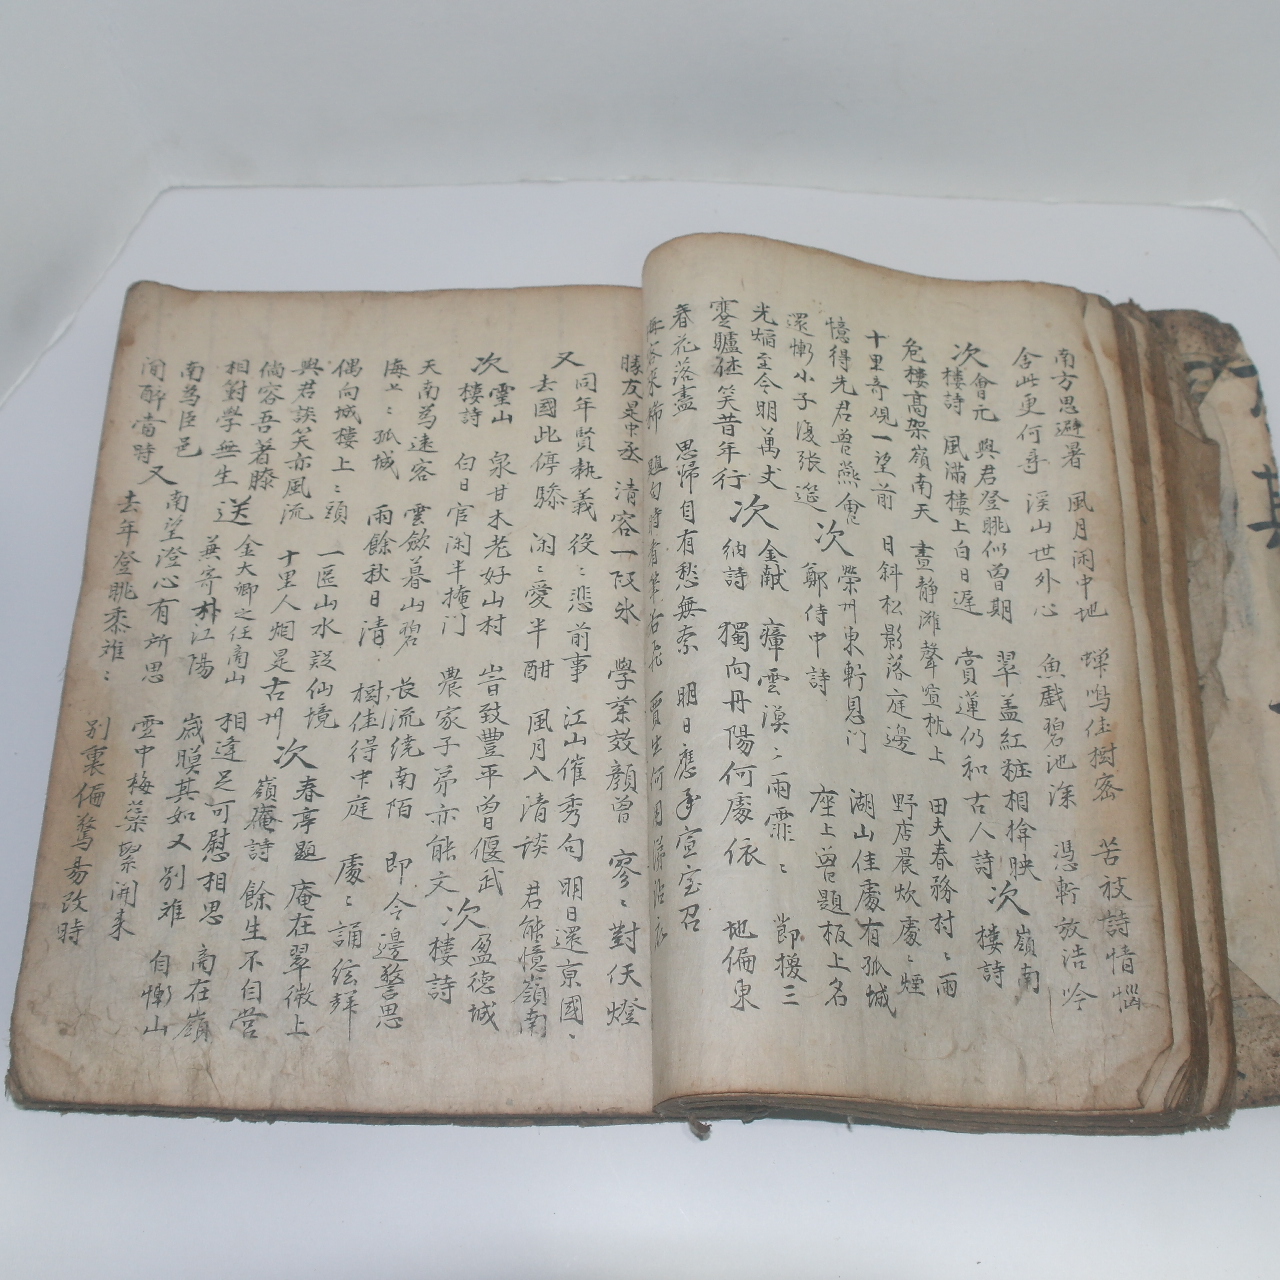 南方思避暑 風月閙中地 蟬鳴佳樹密 苦被詩情惱
舍此更何尋 溪山世外心 魚戱碧池深 憑軒放浩吟
次會元樓詩 與君登眺似曾期 翠盖紅粧相揜映 次嶺南樓詩
風滿樓上白日遲 賞蓮仍和古人詩
危樓高架嶺南天 晝靜灘聲喧枕上 田夫春務村〻雨
十里奇觀一望前 日斜松影落庭邊 野店晨炊處〻煙
憶得先君曾燕會 次榮州東軒恩門鄭侍中詩 湖山佳處有孤城
還慚小子復張筵 座上曾題板上名
光焰至今明萬丈 次金献納詩 瘴雲漠〻雨霏〻 節擁三
春花落盡 思歸自有愁無奈 明日應承宣室召
獨向丹陽何處依 地偏東
勝友是中丞 清容一段氷 學業效顔曾 寥〻對佛燈
又 同年賢執義 役〻悲前事 江山催秀句 明日還京國
去國此停驂 閑〻愛半酣 風月入清談 君能憶嶺南
次靈山樓詩 泉甘木老好山村 時致豐平曾偃武 次盈德城樓詩
白日官閑半掩門 農家子弟亦能文
天南爲遠客 雲斂暮山碧 長流繞南陌 即今邊警息
海上〻孤城 雨餘秋日清 樹佳得中庭 處〻誦絃聲
偶向城樓上〻頭 一區山水疑仙境
與君談笑亦風流 十里人烟是古州
次春亭題嶺庵詩 庵在翠微上
倘容吾著膝 餘生不自營
相對學無生
送金大卿之任商山兼寄朴江陽 相逢足可慰相思 商在嶺
南爲臣邑 歲暮其如又別難 自慚山
間醉當時
又 南望澄心有所思 雪中梅蘂絮開來
去年登眺忝難〻 別裏偏驚易改時